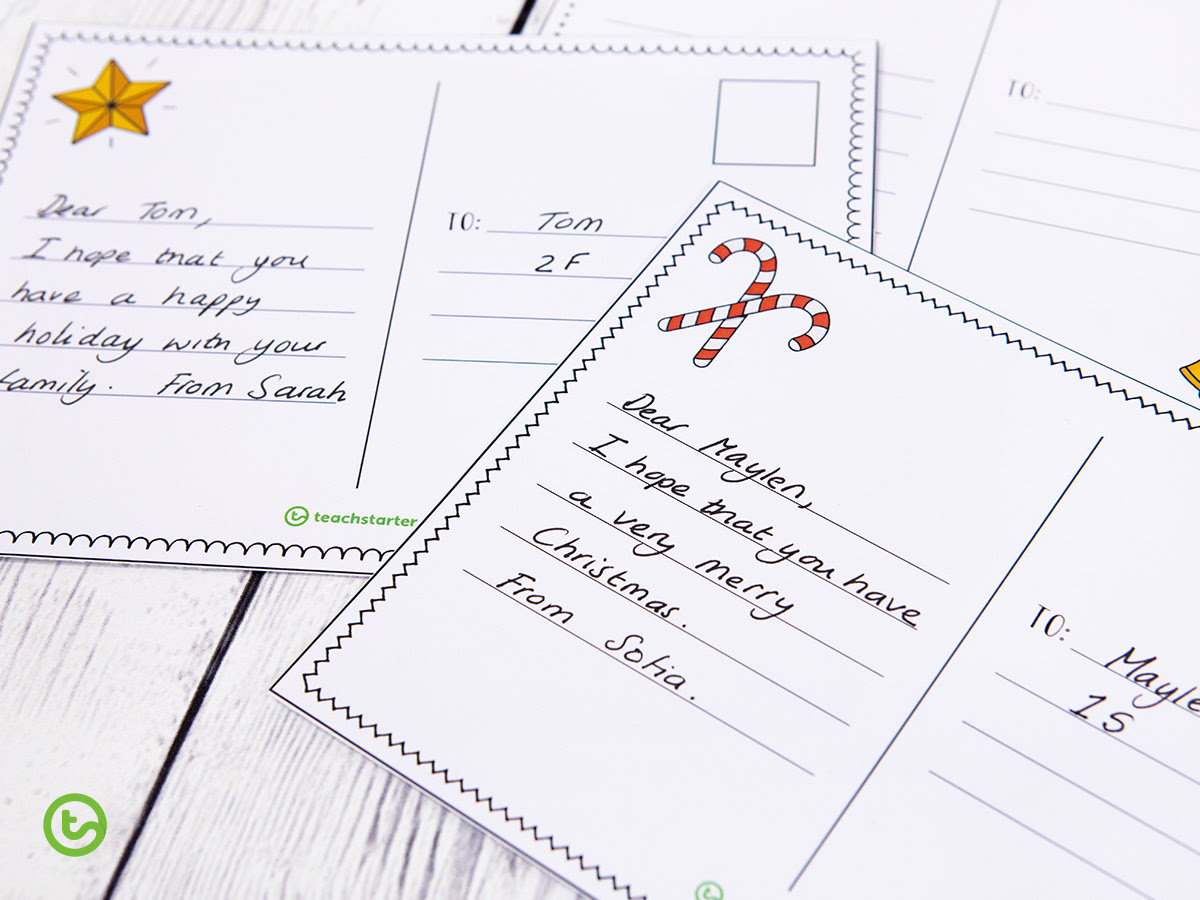 Dear Tom,
I hope that you
have a happy
holiday with your
family. From Sarah
TO: Tom
2F
teachstarter
Dear Maylen,
I hope that you have
a very merry
Christmas.
From Sofia.
TO: Mayle
1S
TO: